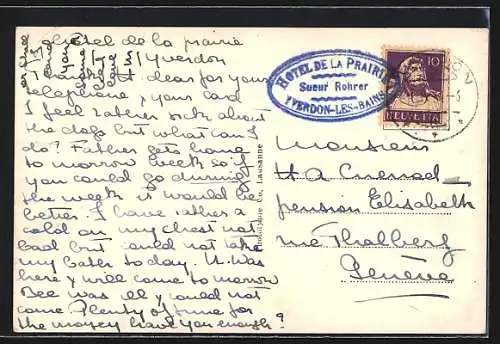 Hotel de la prairie
Yverdon
Thanks dear for your
telephone & your card
I feel rather sick about
the dogs but what can I
do? Father gets home
to morrow week so if
you could go during
the week it would be
better. I have rather a
cold on my chest not
bad but could not take
my bath to day. U. was
here & will come to morrow
Bee was ill & could not
come. Plenty of time for
the money have you enough?
HOTEL DE LA PRAIRIE
Sueur Rohrer
YVERDON-LES-BAINS
10
HELVETIA
Monsieur
pension Elisabeth
rue Thalberg
Genève
Co, Lausanne